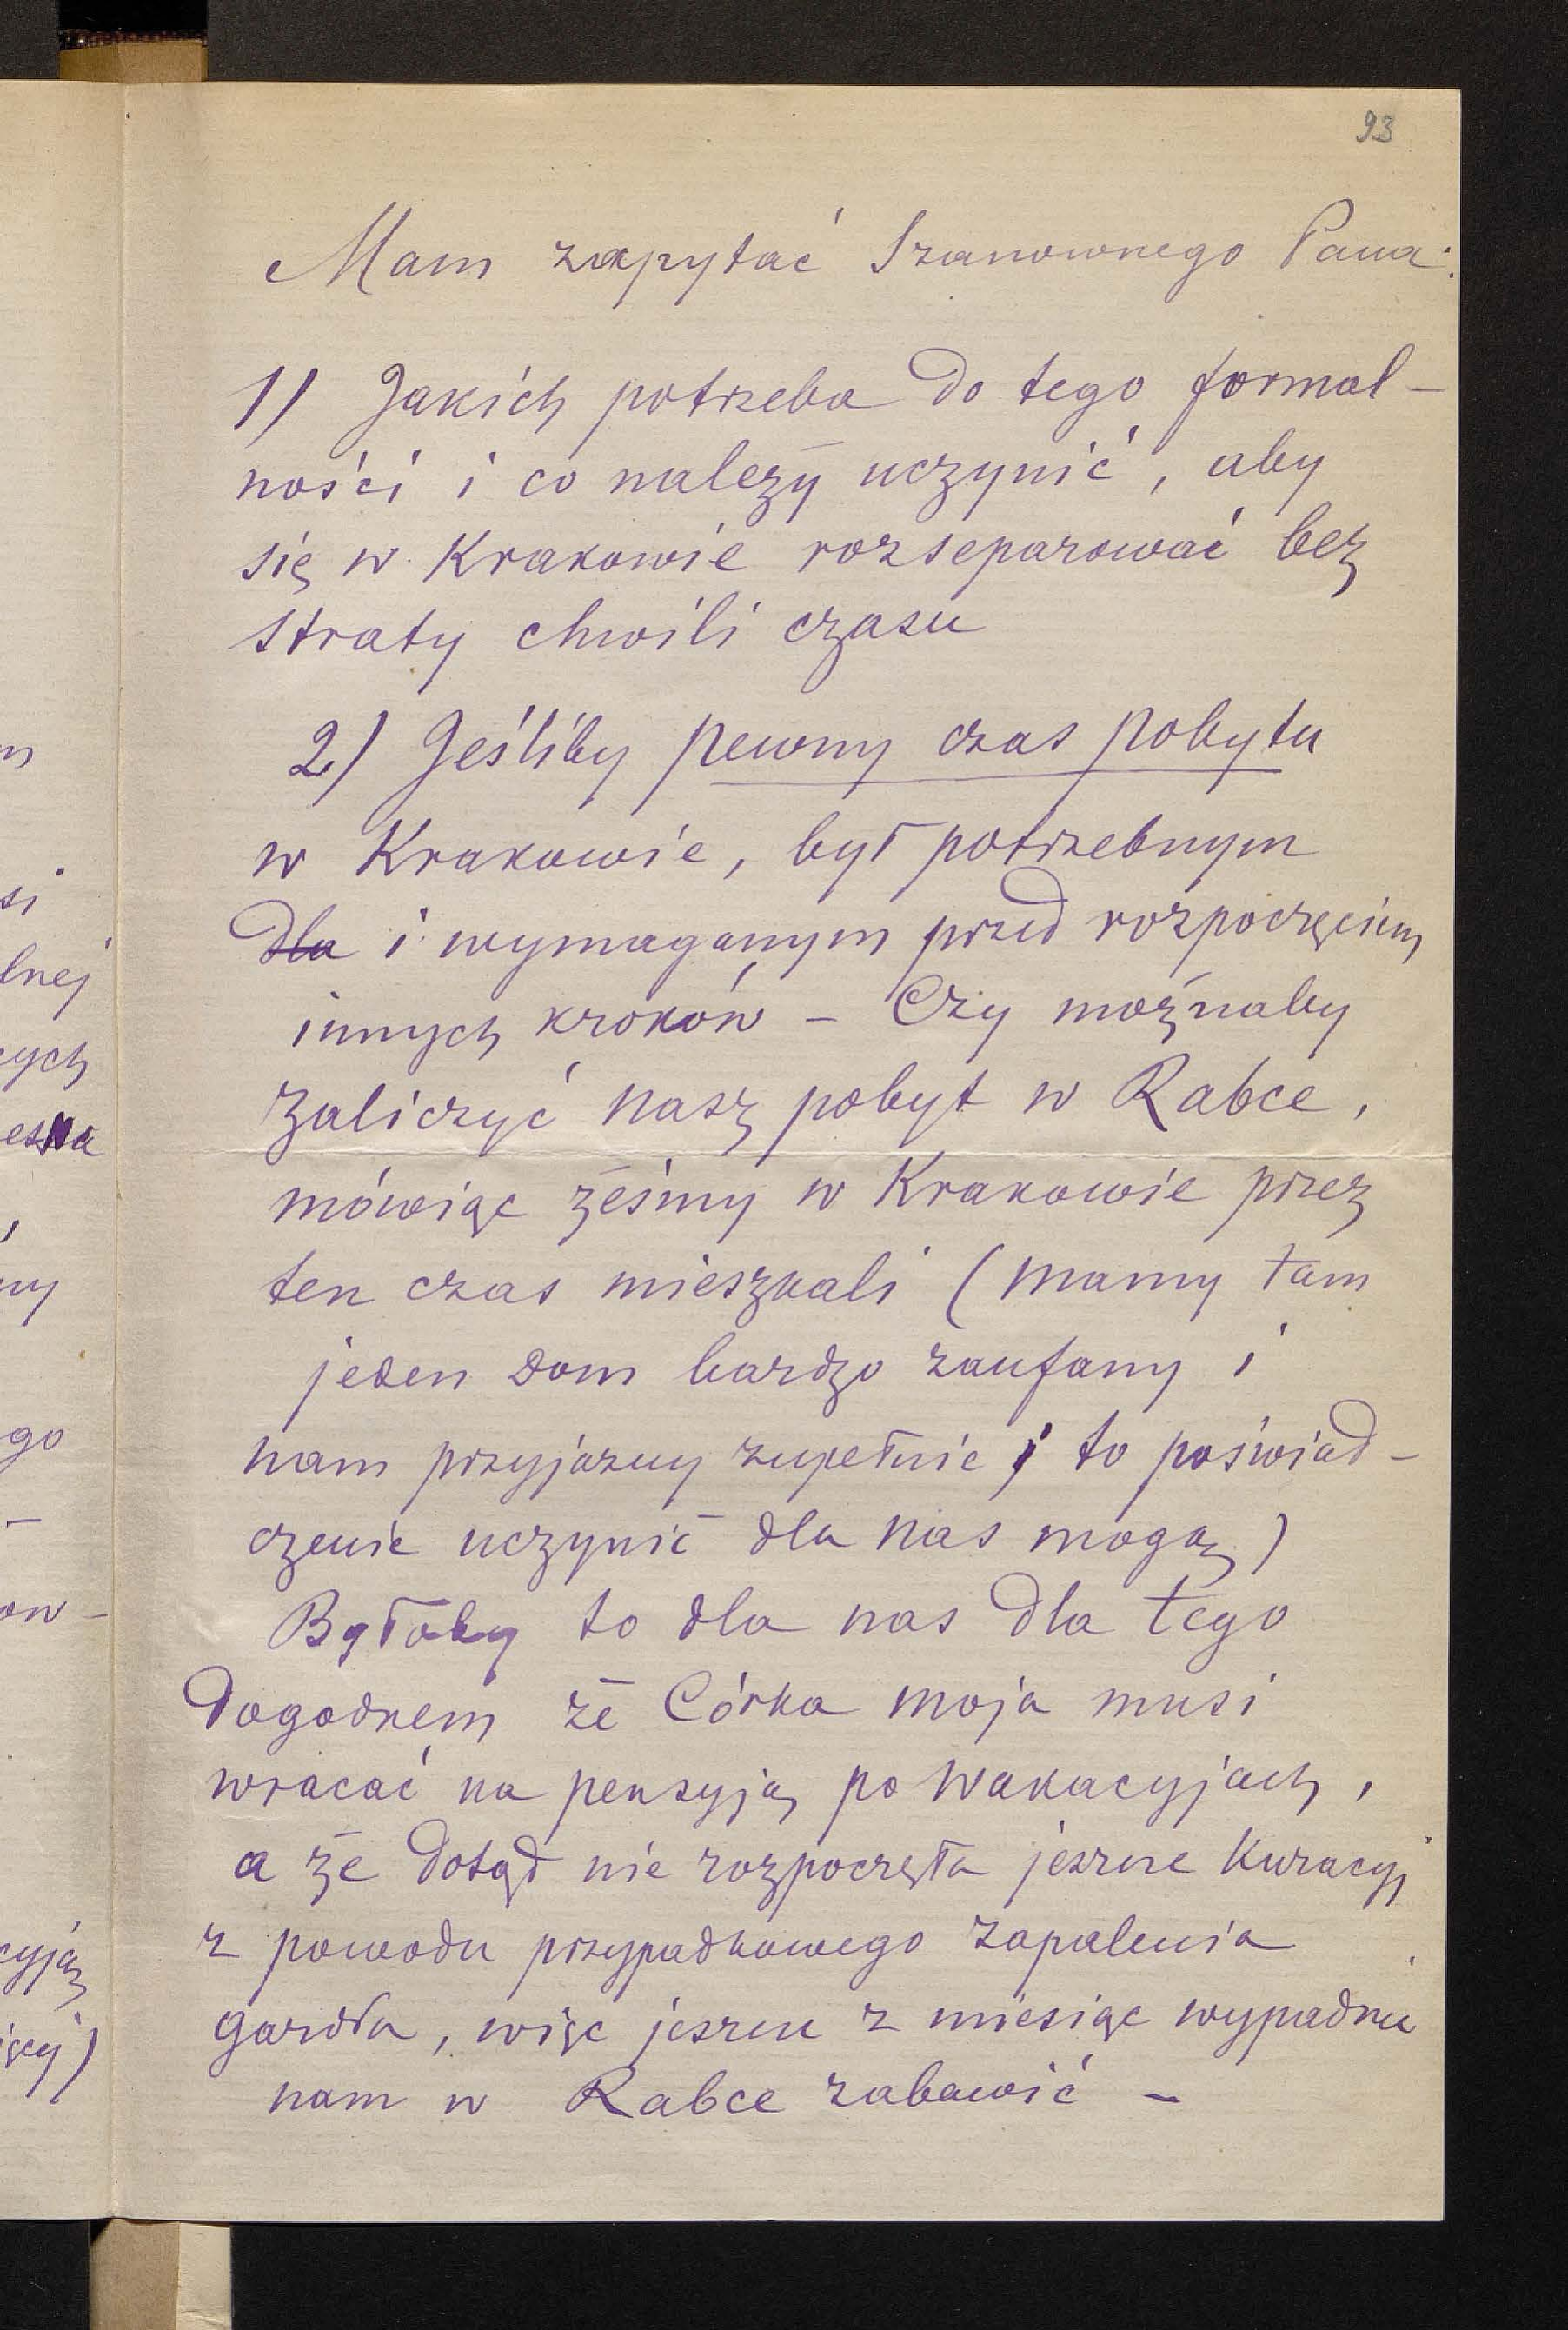 93
Mam zapytać Szanownego Pana:
1) Jakich potrzeba do tego formal-
ności i co należy uczynić, aby
się w Krakowie rozseparować bez
straty chwili czasu
2) Jeśliby pewny czas pobytu
w Krakowie, był potrzebnym
dla i wymaganym przed rozpoczęciem
innych kroków – Czy możnaby
zaliczyć nasz pobyt w Rabce,
mówiąc żeśmy w Krakowie przez
ten czas mieszkali (mamy tam
jeden dom bardzo zaufany i
nam przyjazny zupełnie i to poświad-
czenie uczynić dla nas mogą)
Byłoby to dla nas dla tego
dogodnem że Córka moja musi
wracać na pensyją po wakacyjach,
a że dotąd nie rozpoczęła jeszcze kuracyj
z powodu przypadkowego zapalenia
gardła, więc jeszcze z miesiąc wypadnie
nam w Rabce zabawić –
si
lnej
ych
ny
go
-
ow-
cyją
ięcej)